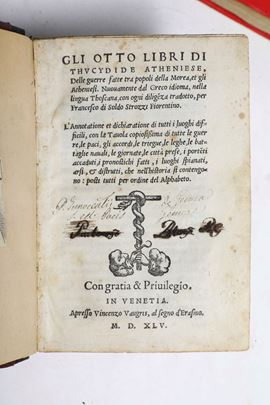 GLI OTTO LIBRI DI
THVCYDIDE ATHENIESE,
Delle guerre fatte tra popoli della Morea, et gli
Atheniesi. Nuouamente dal Greco idioma, nella
lingua Thoscana, con ogni diligẽza tradotto, per
Francesco di Soldo Strozzi Fiorentino.
L'Annotatione et dichiaratione di tutti i luoghi dif-
ficili, con la Tauola copiosissima di tutte le guer
re, le paci, gli accordi, le triegue, le leghe, le bat-
taglie nauali, le giornate, le città prese, i portẽti
accaduti, i pronostichi fatti, i luoghi spianati,
arsi, & distrutti, che nell'historia si contengo-
no: posti tutti per ordine del Alphabeto.
Con gratia & Priuilegio.
IN VENETIA.
Apresso Vincenzo Vaugris, al segno d'Erasmo.
M. D. XLV.